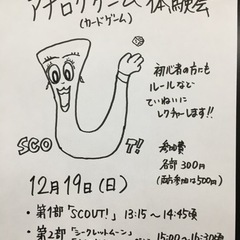 アナログゲーム体験会
(カードゲーム)
初心者の方にも
ルールなど
ていねいに
レクチャーします!!
SCOUT!
参加費
各部300円
(両方参加は500円)
12月19日(日)
・第1部「SCOUT!」13:15〜14:45頃
・第2部「シークレットムーン」
15:00〜16:30頃